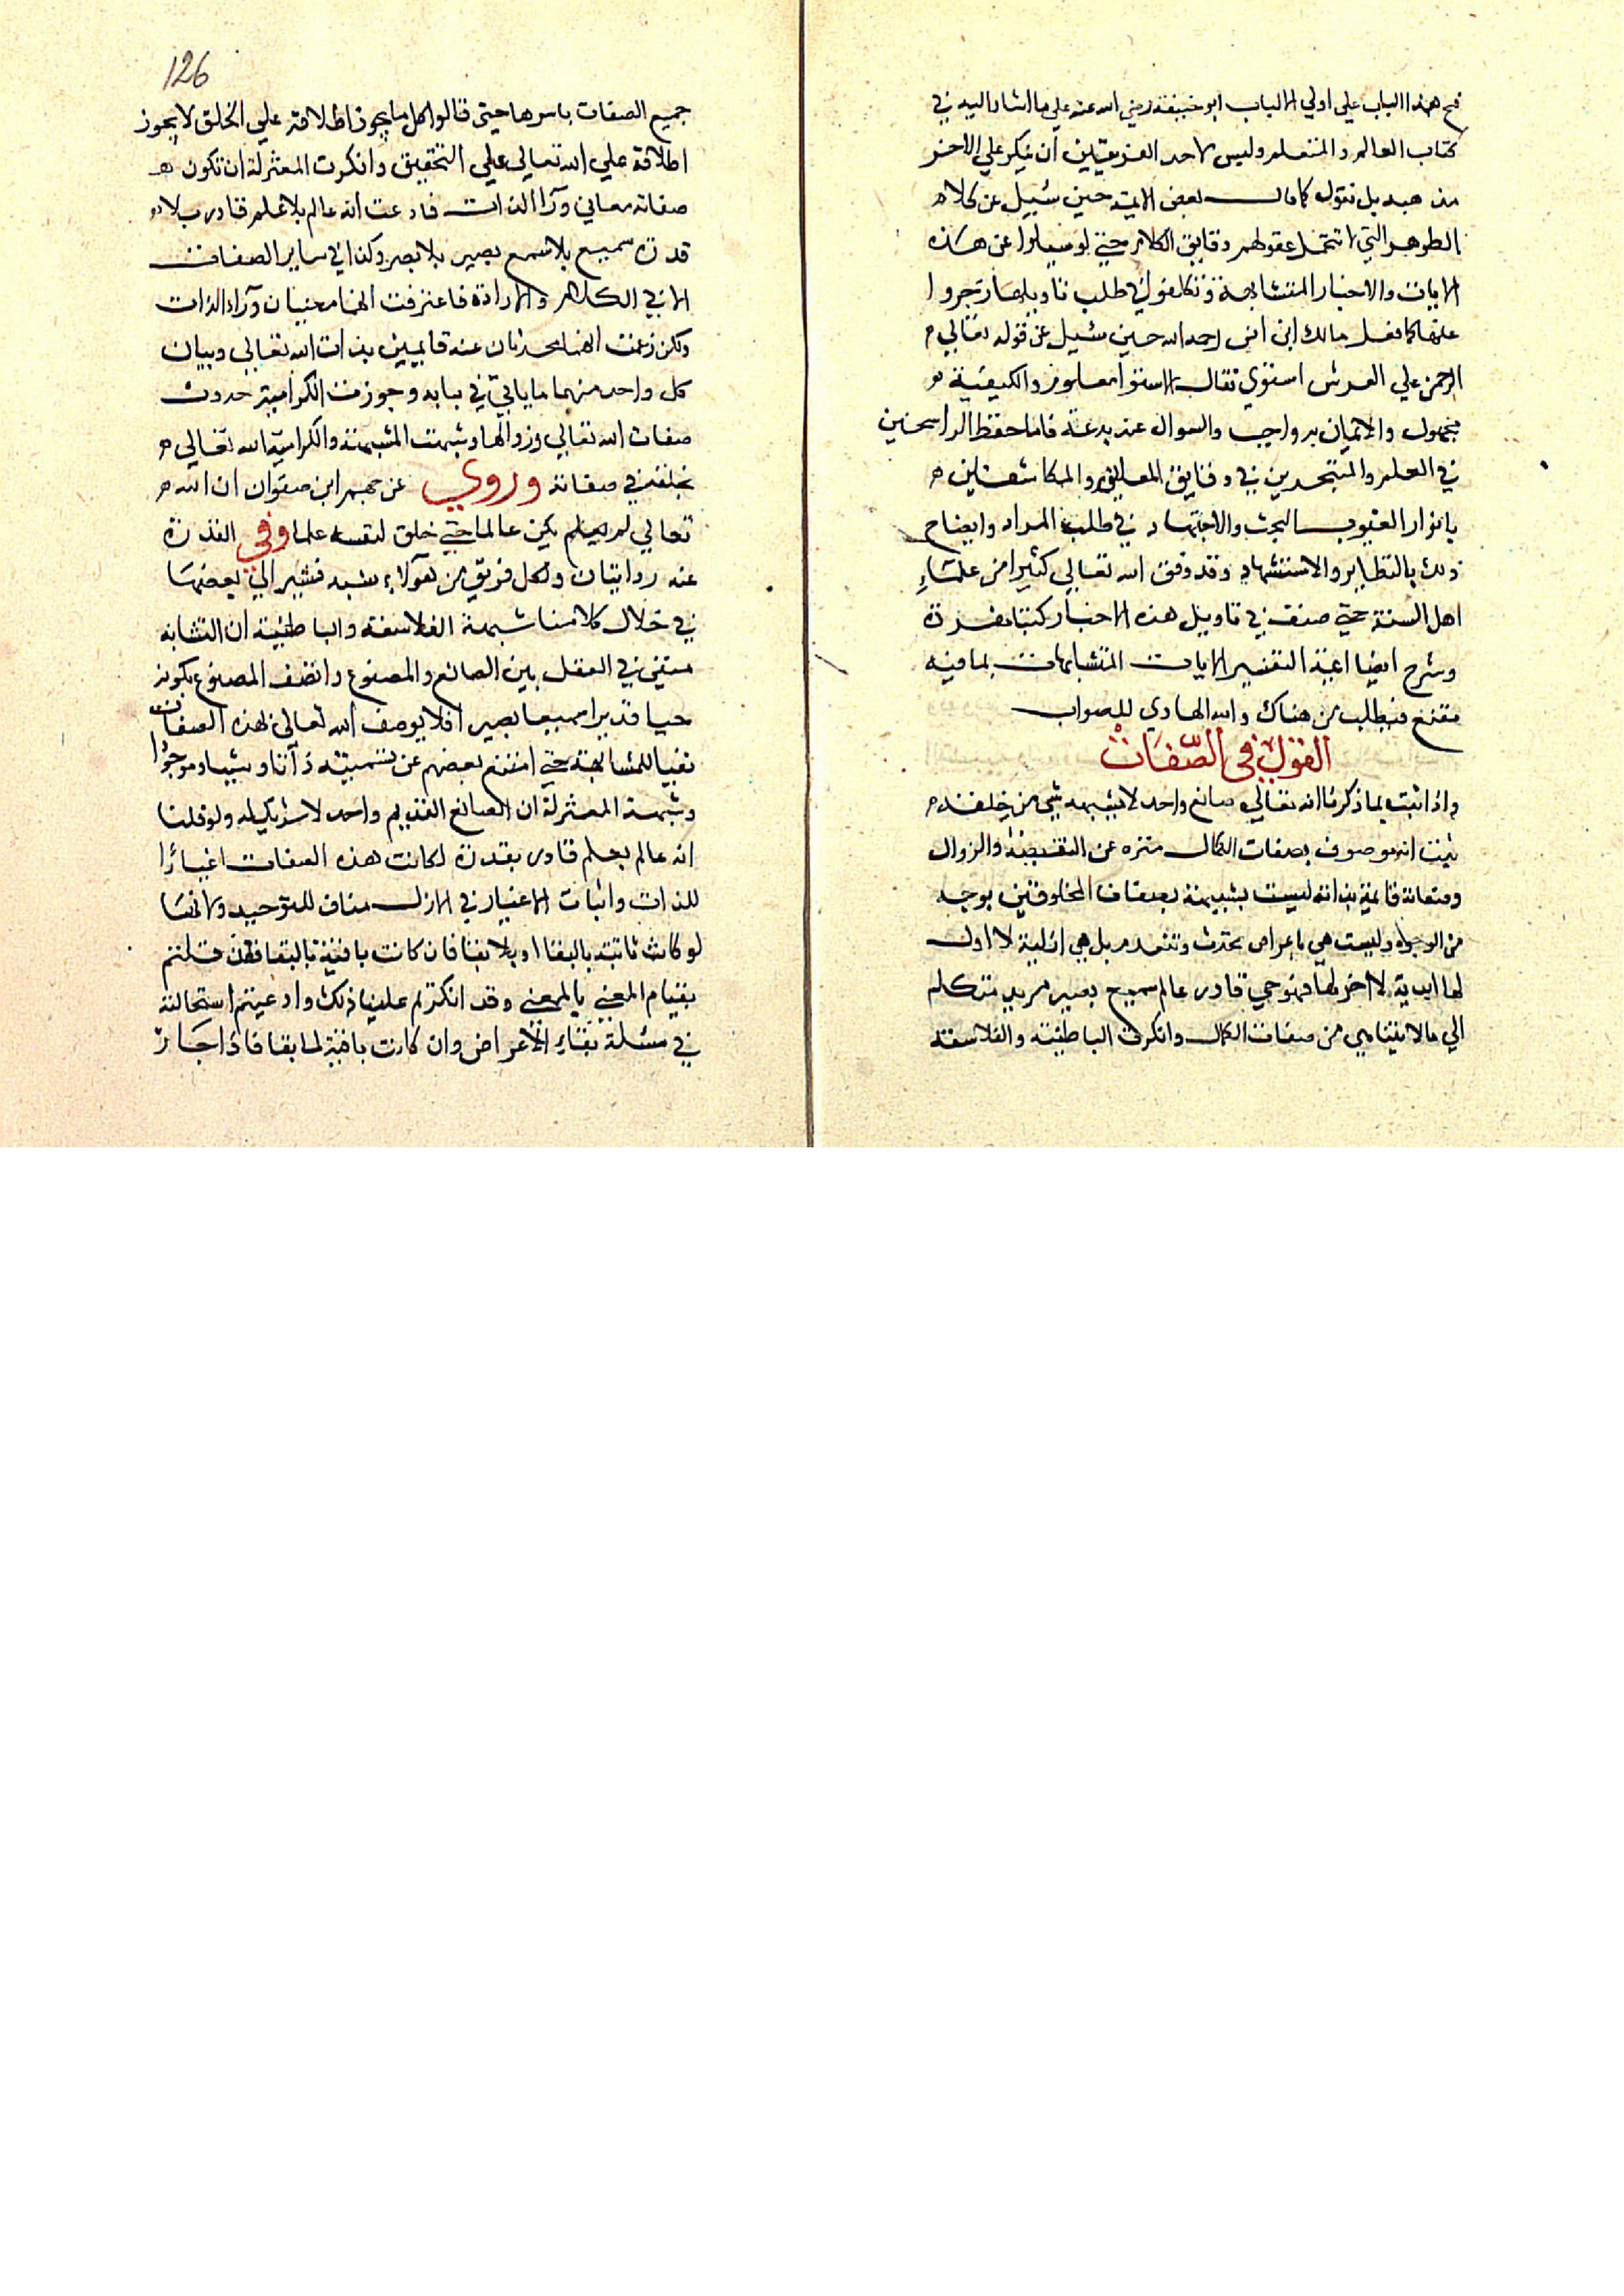 فتح هذا الباب علي اولي الالباب ابو حنيفة رضي الله عنه علي ما اشار اليه في
كتاب العالم والمتعلم وليس لاحد الفريقين أن ينكر علي الاخر
مذهبه بل نقول كما قال بعض الايمة حين سُيل عن كلام
الطوهر التي لا تتحمل عقولهم دقايق الكلام حتي لو سيلوا عن هذه
الايات والاخبار المتشابهة وتكلفوا في طلب تاويلها زجروا
عنها كما فعل مالك ابن انس رحمه الله حين سئيل عن قوله تعالي
الرحمن علي العرش استوي فقال الاستوا معلوم والكيفية
مجهول والايمان به واجب والسوال عنه بدعة فاما حفظ الراسخين
في العلم والمتبحرين في دقايق المعاني والمكاشفين
بانوار الغيوب البحث والاجتهاد في طلب المراد وايضاح
ذلك بالنظاير والاستشهاد وقد وفق الله تعالي كثيرا من علماءِ
اهل السنة حتي صنف في تاويل هذه الاخبار كتبا مفردة
وشرح ايضا اعية التفسير الايات المتشابهات بما فيه
مقنع فيطلب من هناك والله الهادي للصواب
القول في الصّفات
واذا ثبت بما ذكرنا انه تعالي صانع واحد لا يشبهه شي من خلقه
ثبت انه موصوف بصفات الكمال متنزه عن النقيصة والزوال
وصفاته قايمة بذاته ليست بشبيهة بصفات المخلوقين بوجه
من الوجوه وليست هي باعراض تحدث وتنعدم بل هي ازلية لا اول
لها ابدية لا اخر لها فهو حي قادر عالم سميع بصير مريد متكلم
الي مالا يتناهي من صفات الكمال وانكرت الباطنية والفلاسفة
126
جميع الصفات باسرها حيتى قالوا كل ما يجوز اطلاقه علي الخلق لا يجوز
اطلاقة علي الله تعالي علي التحقيق وانكرت المعتزلة ان تكون
صفاته معاني ورآا الذات فادعت انه عالم بلا علم قادر بلا
قدرة سميع بلا سمع بصير بلا بصر وكذا في ساير الصفات
الا في الكلام والارادة فاعترفت انهما معنيان ورآء الذات
ولكن زعمت انهما محدثان عنه قايمين بذات الله تعالي وبيان
كل واحد منهما ما ياتي في بابه وجوزت الكرامية حدوث
صفات الله تعالي وزوالها وشبهت المشبهة والكرامية الله تعالي
بخلقه في صفاته وروي عن جهم ابن صفوان ان الله
تعالي لم يكن عالما حتي خلق لنفسه علما وفي القدرة
عنه روايتان ولكل فريق من هولاء شبه فنشير الي بعضها
في خلال كلامنا شبهة الفلاسفة والباطنية ان التشابه
منتفي في العقل بين الصانع والمصنوع واتصف المصنوع بكونه
حيا قديرا سميعا بصيرا فلا يوصف الله تعالى بهذه الصفات
نفيا للمشابهة حتي امتنع بعضهم عن تسميته ذاتا وشييا وموجودًا
وشبهة المعتزلة ان الصانع القديم واحد لا شريك له ولو قلنا
انه عالم بعلم قادر بقدرة لكانت هذه الصفات اغيارًا
للذات واثبات الاغيار في الازل مناف للتوحيد ولانها
لو كانت ثابتة بالبقا او بلا بقا فان كانت باقية بالبقا فقد قلتم
بقيام المعني بالمعني وقد انكرتم علينا ذلك وادعيتم استحالته
في مسئلة بقاءِ الأعراض وان كانت باقية لا بقا فاذا جاز